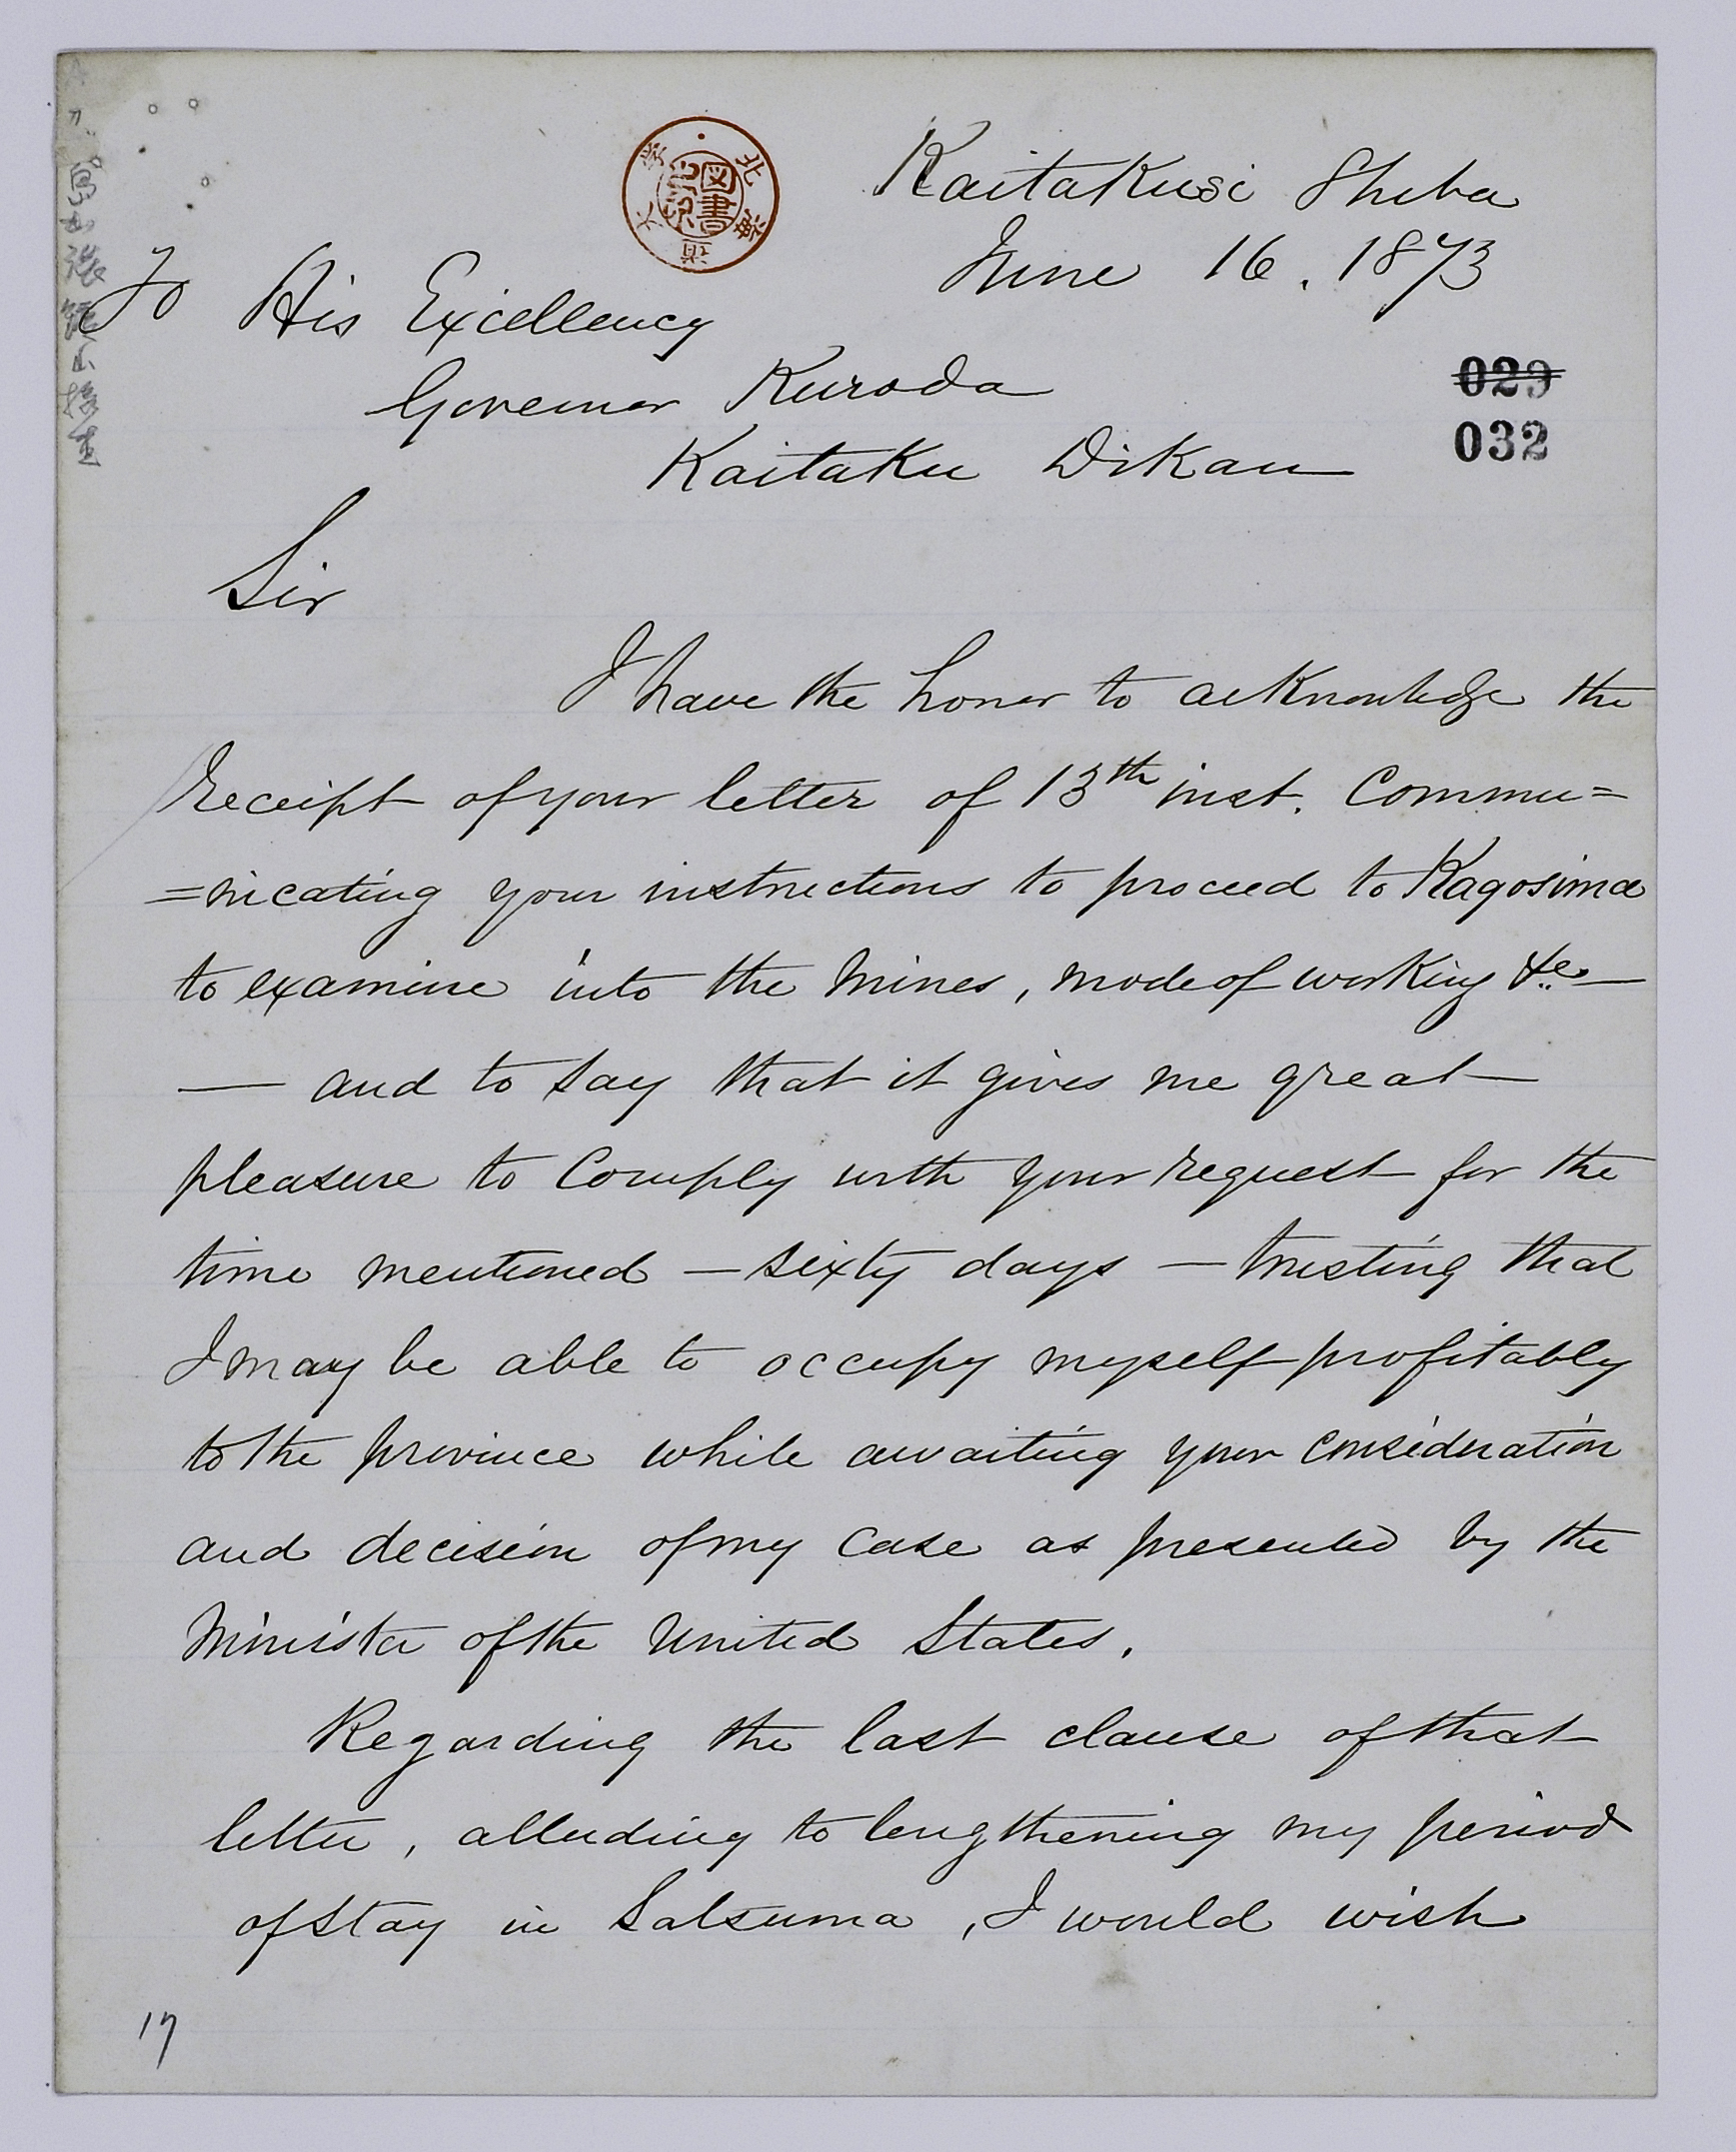 Kaitakusi Shiba
June 16. 1873
To His Excellency
Governor Kuroda
029
032
Kaitaku Dikan
Sir
I have the honor to acknowledge the
receipt of your letter of 13th inst. Commu=
=nicating your instructions to proceed to Kagosima
to examine into the Mines, mode of working &c —
— and to say that it gives me great
pleasure to Comply with your request for the
time mentioned — sixty days — trusting that
I may be able to occupy myself profitably
to the province while awaiting your consideration
and decision of my Case as presented by the
Minister of the United States.
Regarding the last clause of that
letter, alluding to lengthening my period
of stay in Satsuma, I would wish
17
北海道大学
図書